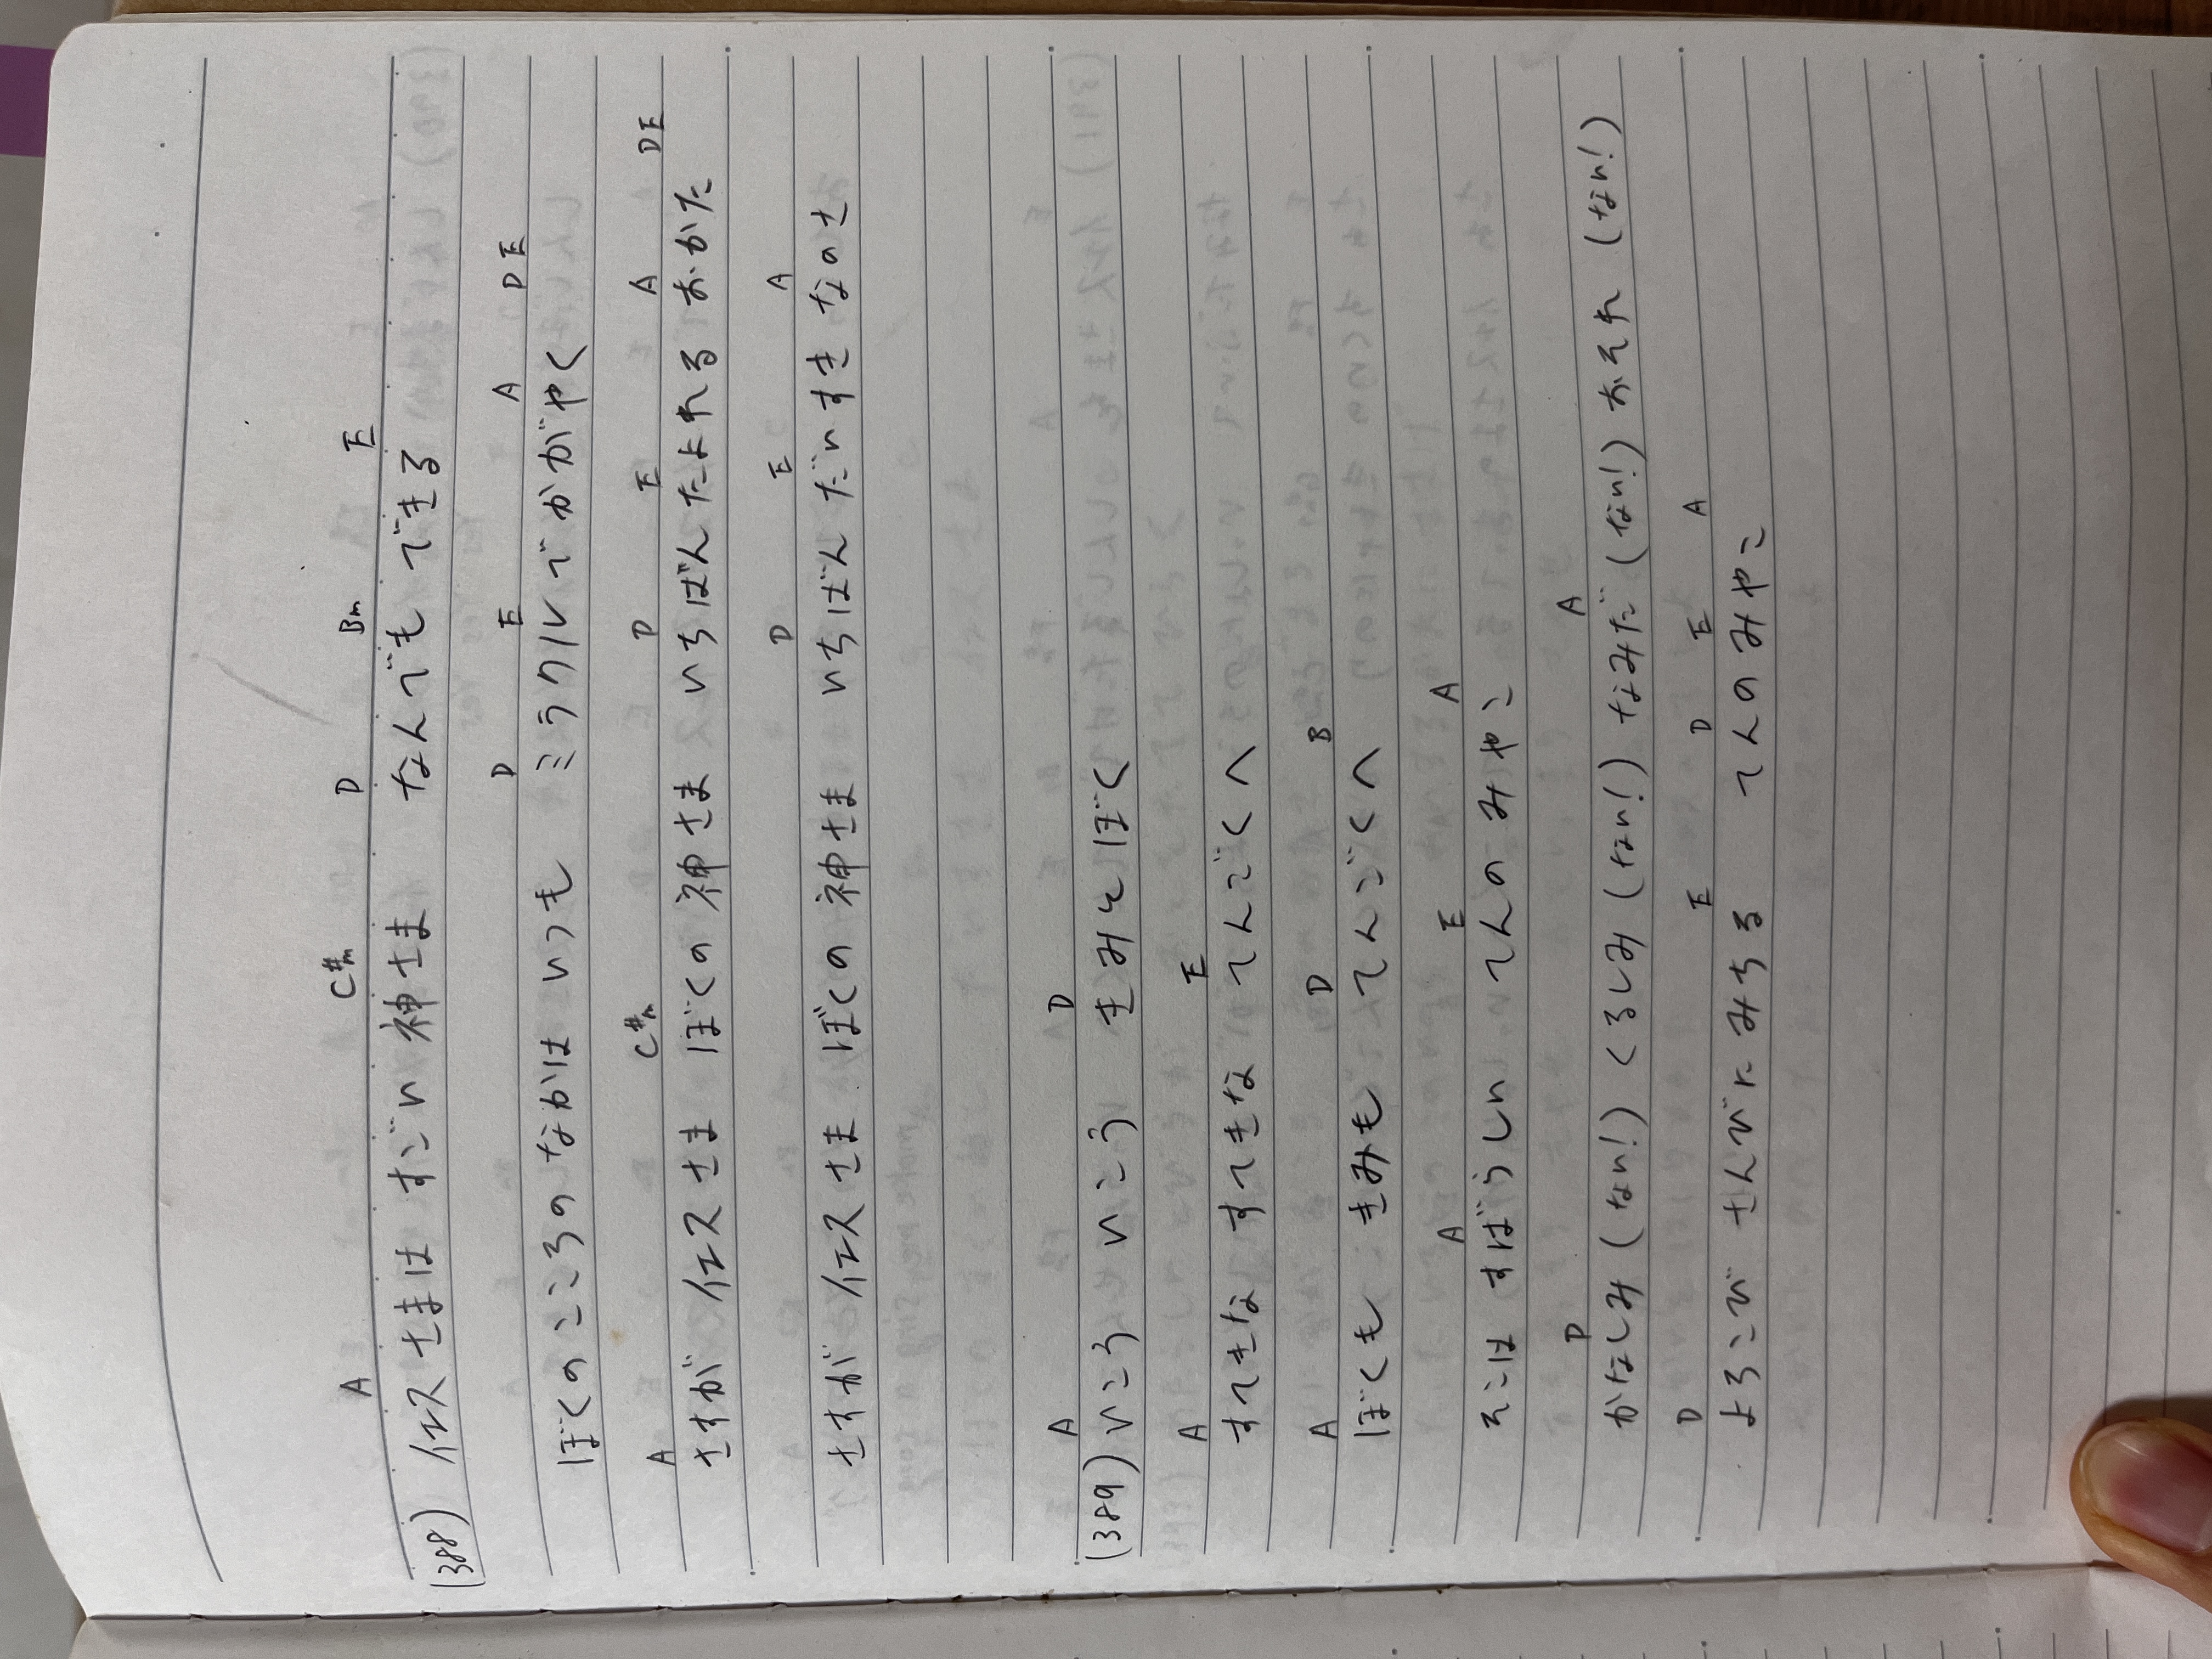 A C#m D Bm E
(388) イエスさまは すごい 神さま なんでも できる
D E A D E
ぼくの こころの なかは いつも ミラクルでかがやく
A C#m D E A D E
さすが イエスさま ぼくの 神さま いちばんたよれる おかた
D E A
さすが イエスさま ぼくの 神さま いちばん だいすき なのさ
A D
(389) いこう いこう きみと ぼく
A E
すてきな すてきな てんごくへ
A D B
ぼくも きみも てんごくへ
A E A
そこは すばらしい てんの みやこ
D A
かなしみ (ない!) くるしみ (ない!) なみだ (ない!) おそれ (ない!)
D E D E A
よろこび さんびに みちる てんの みやこ